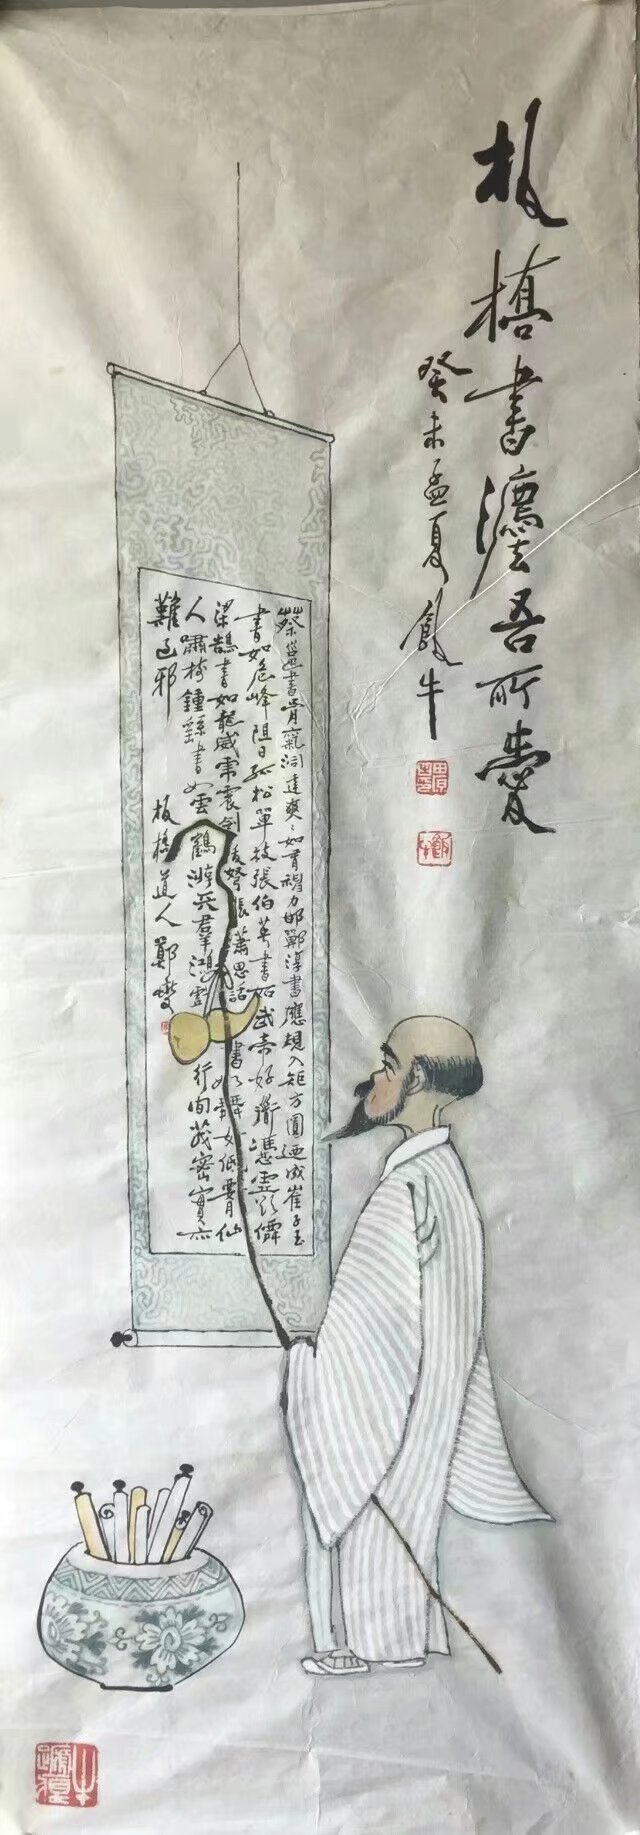 板橋書灋吾所愛
癸未孟夏飯牛
蔡邕書骨氣洞達爽〻如有神力邯鄲淳書應規入矩方圓迺成崔子玉
書如危峰阻日孤松單枝張伯英書如武帝好衟憑虛欲僊
梁鵠書如龍威虎震劍拔弩張蕭思話書如舞女低腰仙
人嘯樹鍾繇書如雲鶴游天羣鴻戲行間茂密實亦
難過邪
板橋道人鄭燮